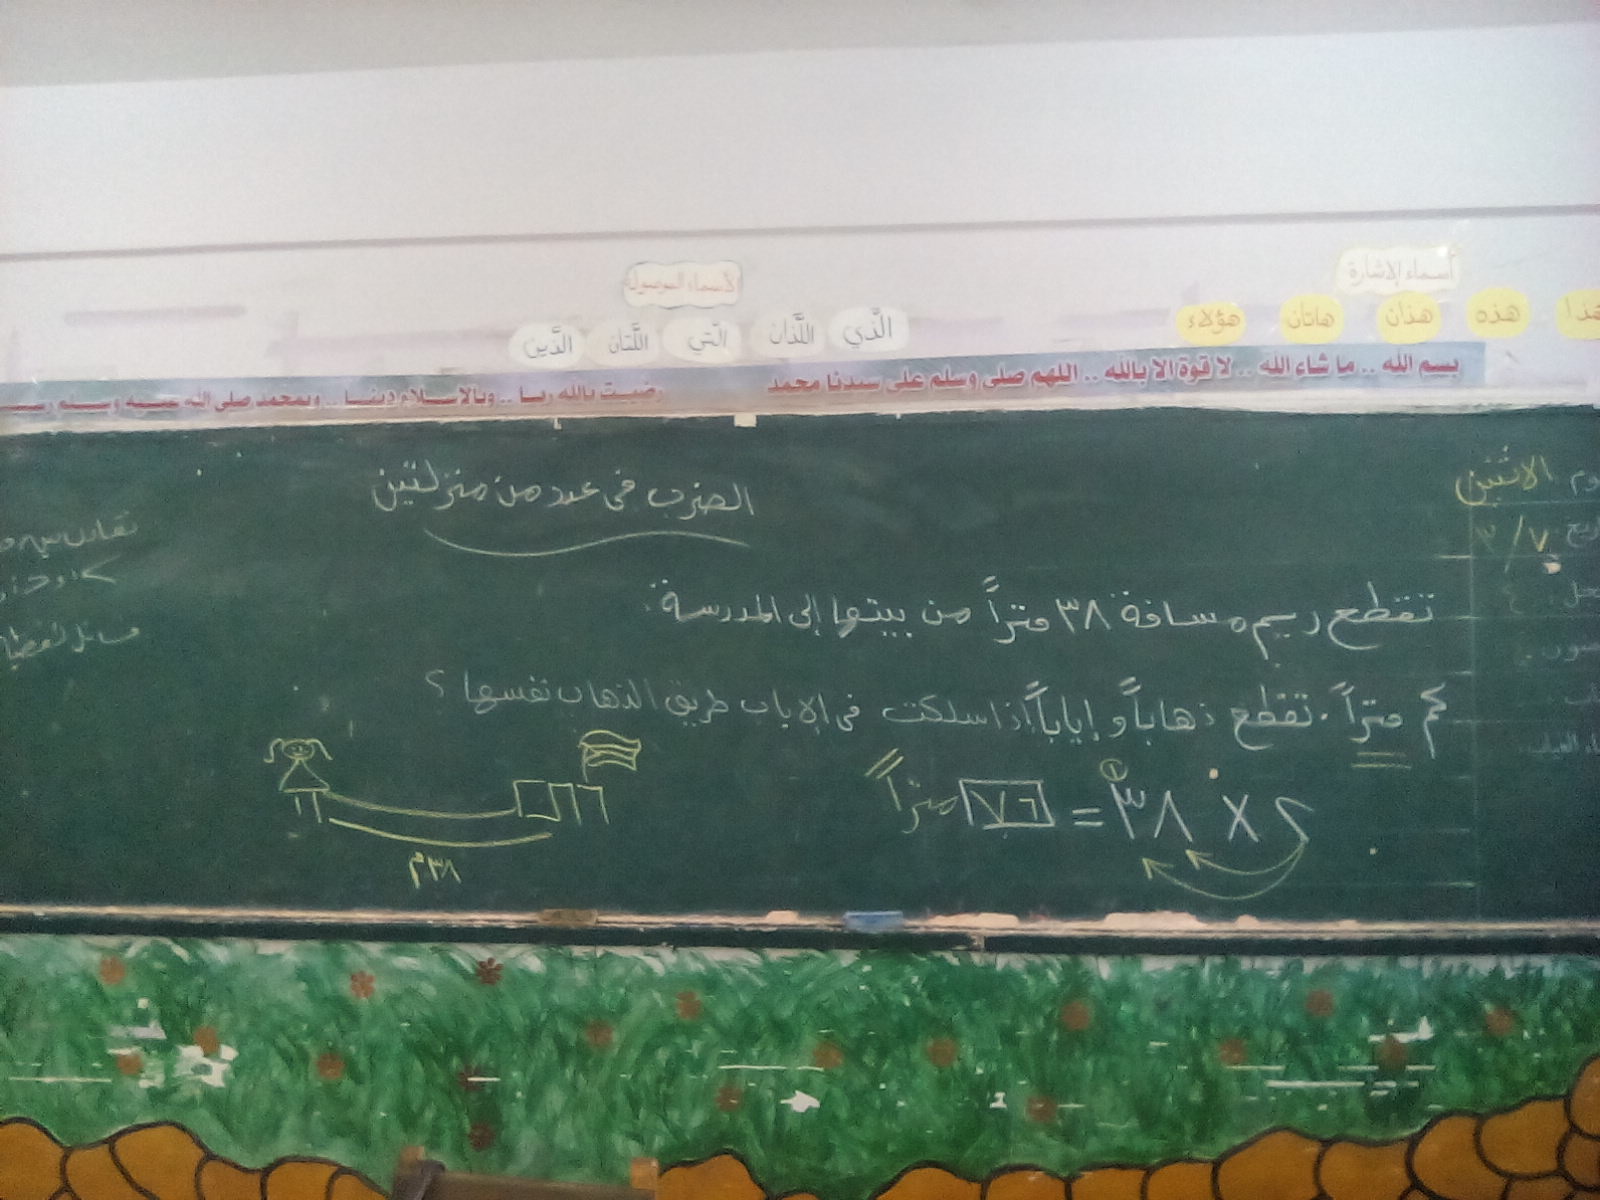 أسماء الإشارة
هذا هذه هذان هاتان هؤلاء
الأسماء الموصولة
الَّذي اللَّذان الَّتي اللَّتان الَّذين
بسم الله .. ما شاء الله .. لا قوة الا بالله .. اللهم صلى وسلم على سيدنا محمد
رضيت بالله ربا .. وبالاسلام دينا .. وبمحمد صلى الله عليه وسلم
الاثنين
٣/٧
الضرب في عدد من منزلتين
تقطع ريم مسافة ٣٨ متراً من بيتها إلى المدرسة.
كم متراً تقطع ذهاباً و إياباً إذا سلكت في الإياب طريق الذهاب نفسها ؟
٢ × ٣٨ = ٧٦ متراً
①
٣٨م